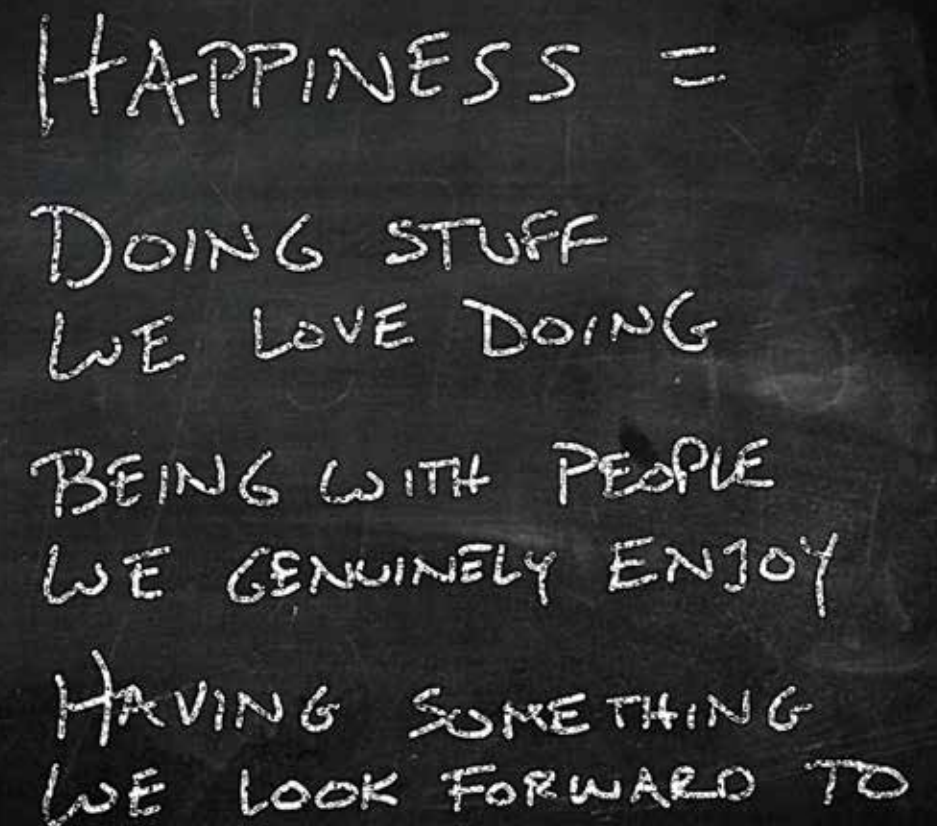 HAPPINESS =
DOING STUFF
WE LOVE DOING
BEING WITH PEOPLE
WE GENUINELY ENJOY
HAVING SOMETHING
WE LOOK FORWARD TO